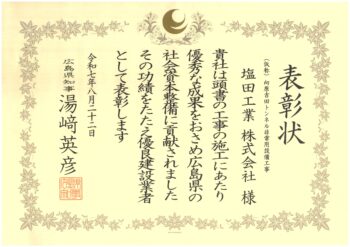 表彰状
(仮称)向原吉田トンネル非常用設備工事
塩田工業 株式会社 様
貴社は頭書の工事の施工にあたり
優秀な成果をおさめ広島県の
社会資本整備に貢献されました
その功績をたたえ優良建設業者
として表彰します
令和七年八月二十二日
広島県知事 湯﨑英彦